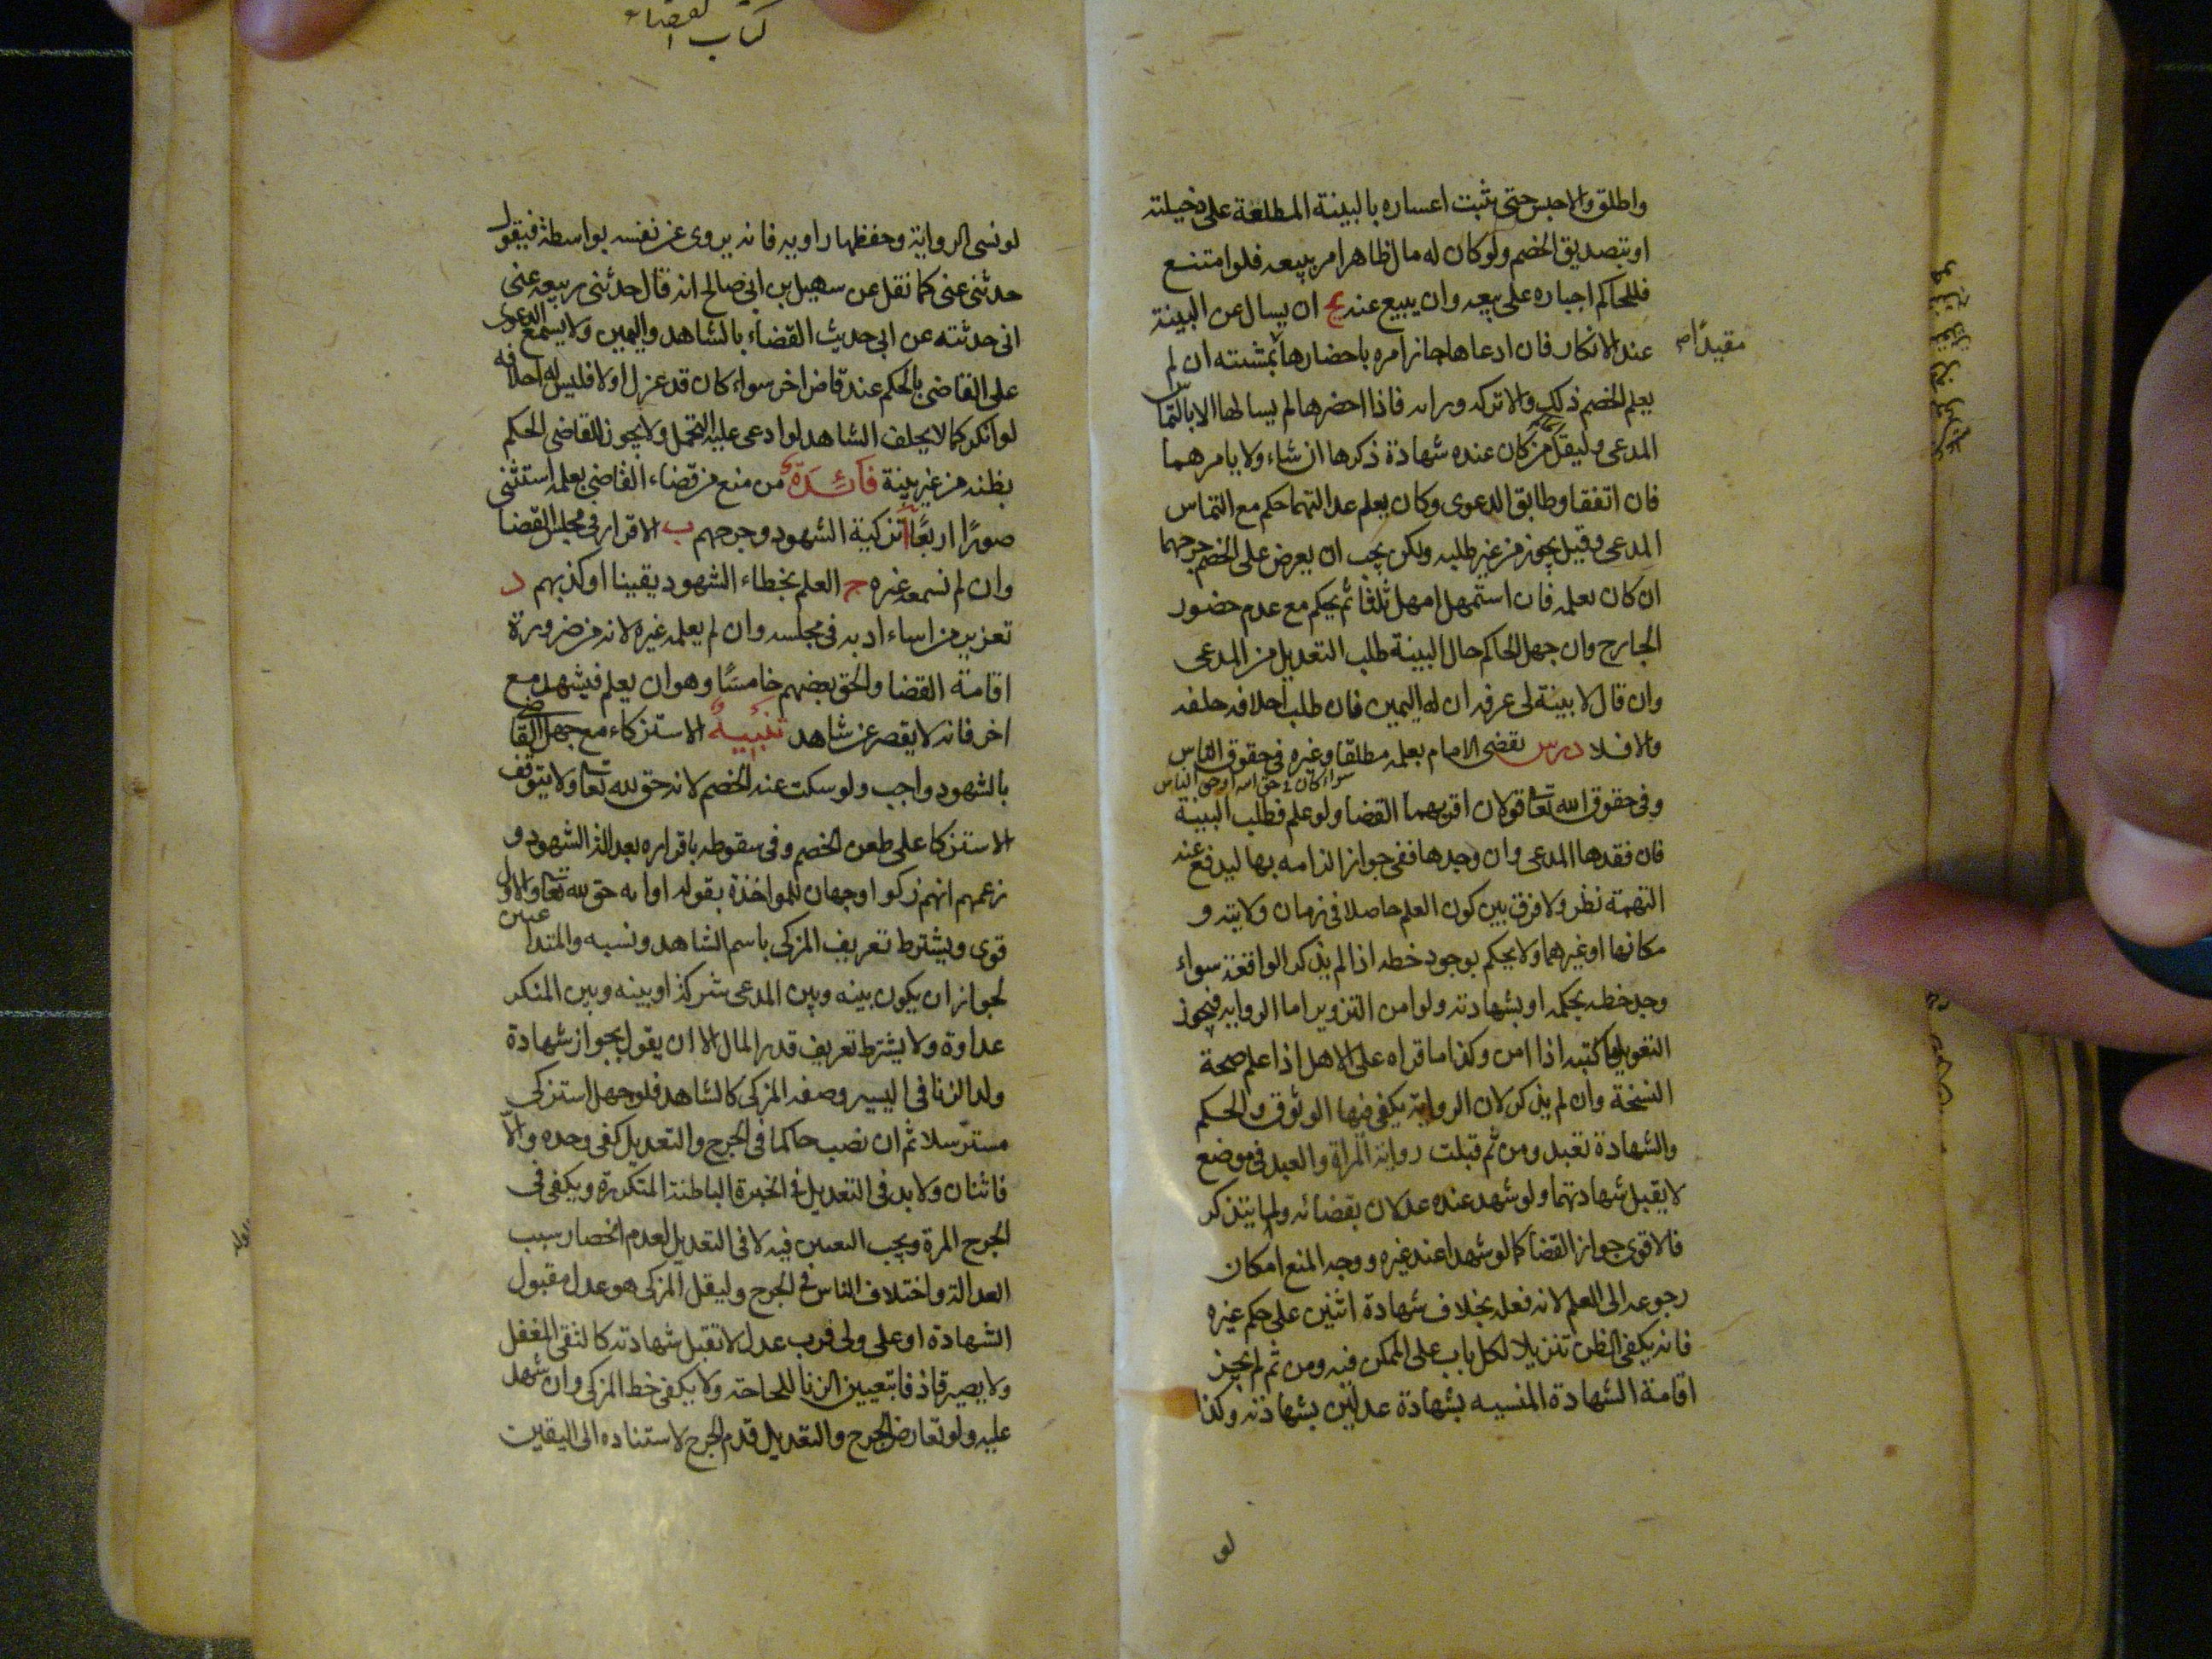 واطلق والاحبس حتى يثبت اعساره بالبينة المطلعة على دخيلته
او بتصديق الخصم ولو كان له مال ظاهر امر ببيعه فلو امتنع
فللحاكم اجباره على بيعه وان يبيع عنه يح ان يسال عن البينة
عند الانكار فان ادعاها جاز امره باحضارها بمشيته ان لم
مقيدا
يعلم الخصم ذلك والا تركه ورايه فاذا احضرها لم يسالها الا بالتماس
المدعى وليقل من كان عنده شهادة ذكرها ان شاء ولا يامرهما
فان اتفقا وطابق الدعوى وكان يعلم عدالتهما حكم مع التماس
المدعى وقيل يجوز من غير طلبه ولكن يجب ان يعرض على الخصم جرحهما
ان كان يعلمه فان استمهل امهل ثلثا ثم يحكم مع عدم حضور
الجارح وان جهل الحاكم حال البينة طلب التعديل من المدعى
وان قال لا بينة لى عرفه ان له اليمين فان طلب احلافه حلفه
والا فلا درس يقضى الامام بعلمه مطلقا وغيره فى حقوق الناس
سواء كان فى حق الله او حق الناس
وفى حقوق الله تعا قولان اقربهما القضا ولو علم فطلب البينة
فان فقدها المدعى وان وجدها ففى جواز الزامه بها ليدفع عنه
التهمة نظر ولا فرق بين كون العلم حاصلا فى زمان ولايته و
مكانها او غيرهما ولا يحكم بوجود خطه اذا لم يذكر الواقعة سواء
وجد خطه بحكمه او بشهادته ولو امن التزوير اما الرواية فيجوز
التعويل بما كتبه اذا امن وكذا ما قراه على الاهل اذا علم صحة
النسخة وان لم يذكر لان الرواية يكفى فيها الوثوق والحكم
والشهادة تعبد ومن ثم قبلت رواية المراة والعبد فى موضع
لا يقبل شهادتهما ولو شهد عنده عدلان بقضائه ولما يتذكر
فالاقوى جواز القضا كما لو شهدا عند غيره ووجه المنع امكان
رجوعه الى العلم لانه فعله بخلاف شهادة اثنين على حكم غيره
فانه يكفى الظن تنزيلا لكل باب على الممكن فيه ومن ثم لم يجز
اقامة الشهادة المنسيه بشهادة عدلين بشهادته وكذا
لو
كتاب القضاء
لو نسى الرواية وحفظها راويه فانه يروى عن نفسه بواسطة فيقول
حدثنى عنى كما نقل عن سهيل بن ابى صالح انه قال حدثنى ربيعه عنى
انى حدثته عن ابى حديث القضاء بالشاهد واليمين ولا يسمع الدعوى
على القاضى بالحكم عند قاض اخر سواء كان قد عزل اولا فليس له احلافه
لو انكر كما لا يحلف الشاهد لو ادعى عليه التحمل ولا يجوز للقاضى الحكم
بظنه من غير بينة فائدة من منع من قضاء القاضى بعلمه استثنى
صورا اربعا ا تزكية الشهود وجرحهم ب الاقرار فى مجلس القضا
وان لم نسمعه غيره ج العلم بخطاء الشهود يقينا او كذبهم د
تعزير من اساء ادبه فى مجلسه وان لم يعلمه غيره لانه من ضرورة
اقامة القضا والحق بعضهم خامسا وهو ان يعلم فيشهد مع
اخر فانه لا يقصر عن شاهد تنبيه الاستزكاء مع جهل القاضى
بالشهود واجب ولو سكت عنه الخصم لانه حق لله تعا ولا يتوقف
الاستزكا على طعن الخصم وفى سقوطه باقراره بعدالة الشهود و
زعمهم انهم زكوا وجهان للمواخذة بقوله او انه حق لله تعا والاول
قوى ويشترط تعريف المزكى باسم الشاهد ونسبه والمتداعيين
لجواز ان يكون بينه وبين المدعى شركة او بينه وبين المنكر
عداوة ولا يشترط تعريف قدر المال الا ان يقول بجواز شهادة
ولد الزنا فى اليسير وصفه المزكى كالشاهد فلو جهل استزكى
مسترسلا ثم ان نصب حاكما فى الجرح والتعديل كفى وحده والا
فاثنان ولا بد فى التعديل فى الخبرة الباطنة المتكررة ويكفى فى
الجرح المرة ويجب التعيين فيه لا فى التعديل لعدم انحصار سبب
العدالة واختلاف الناس فى الجرح وليقل المزكى هو عدل مقبول
الشهادة او على ولى فرب عدل لا تقبل شهادته كالثقى المغفل
ولا يصير قاذفا بتعيين الزنا للحاجة ولا يكفى خط المزكى وان شهد
عليه ولو تعارض الجرح والتعديل قدم الجرح لاستناده الى اليقين